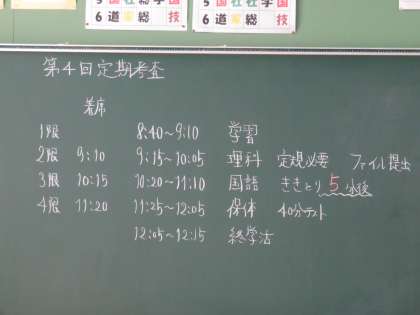 5 国 社 社 学 国
6 道 総 技
5 国 社 社 学 国
6 道 総 技
第4回定期考査
着席
1限 8:40~9:10 学習
2限 9:10 9:15~10:05 理科 定規必要 ファイル提出
3限 10:15 10:20~11:10 国語 ききとり5分後
4限 11:20 11:25~12:05 保体 40分テスト
12:05~12:15 終学活